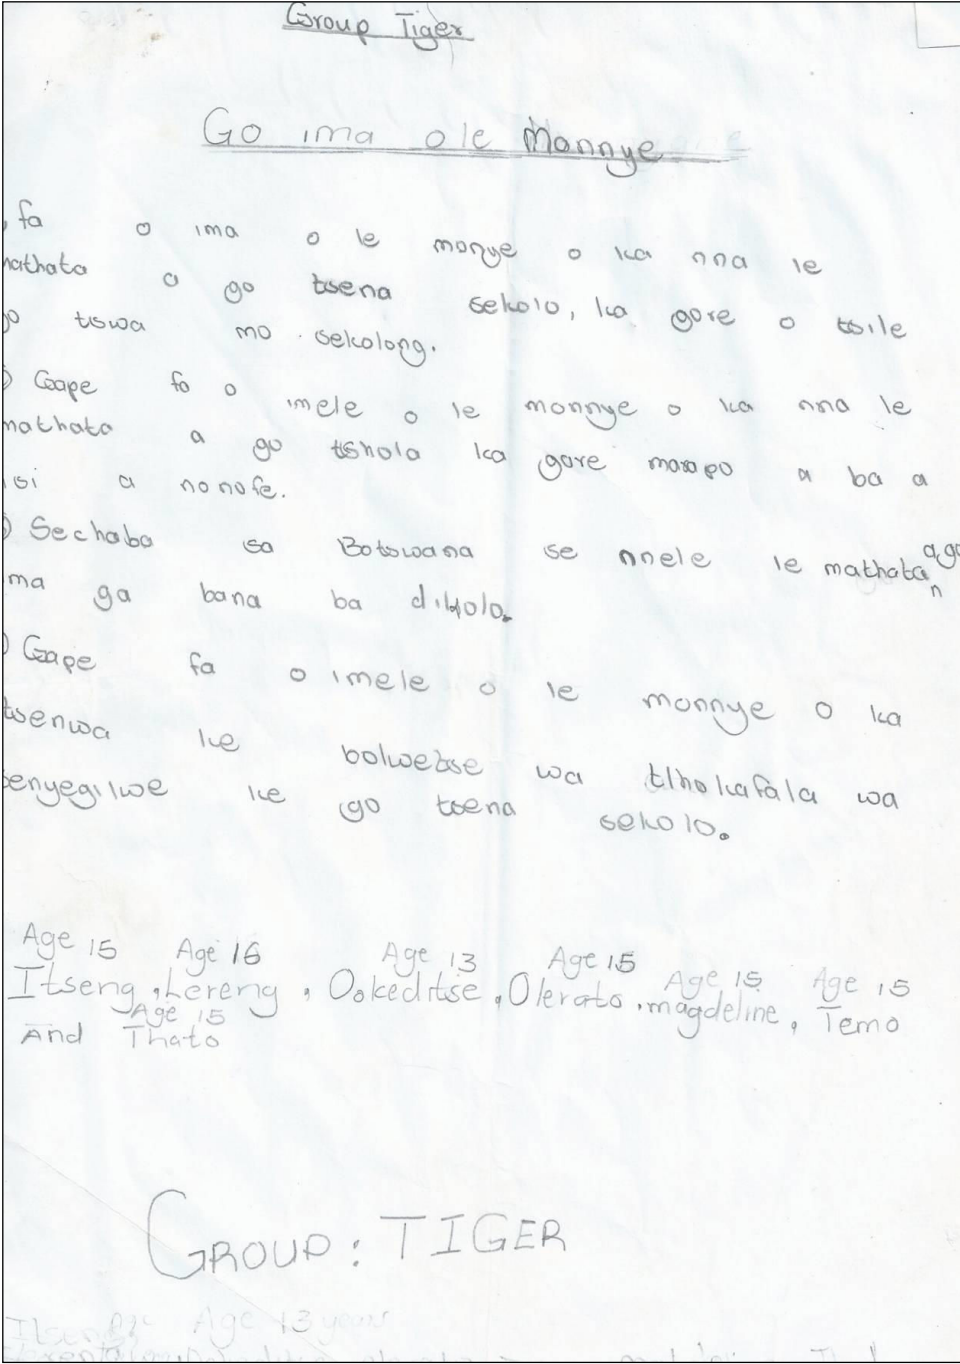 Group Tiger
Go ima ole Monnye
fa o ima o le monye o ka nna le
mathata a go tsena sekolo, ka gore o tsile
go tswa mo sekolong.
Gape fa o imele o le monnye o ka nna le
mathata a go tshola ka gore marapo a ba a
isi a nonofe.
Sechaba sa Botswana se nnele le mathata a go
ima ga bana ba dikolo.
Gape fa o imele o le monnye o ka
tsenwa ke bolwetse wa tlhokafala wa
senyegilwe ke go tsena sekolo.
Age 15 Age 16 Age 13 Age 15 Age 15 Age 15
Itseng, Lereng, Ookeditse, Olerato, magdeline, Temo
Age 15
And Thato
GROUP: TIGER
Itseng Age 13 years